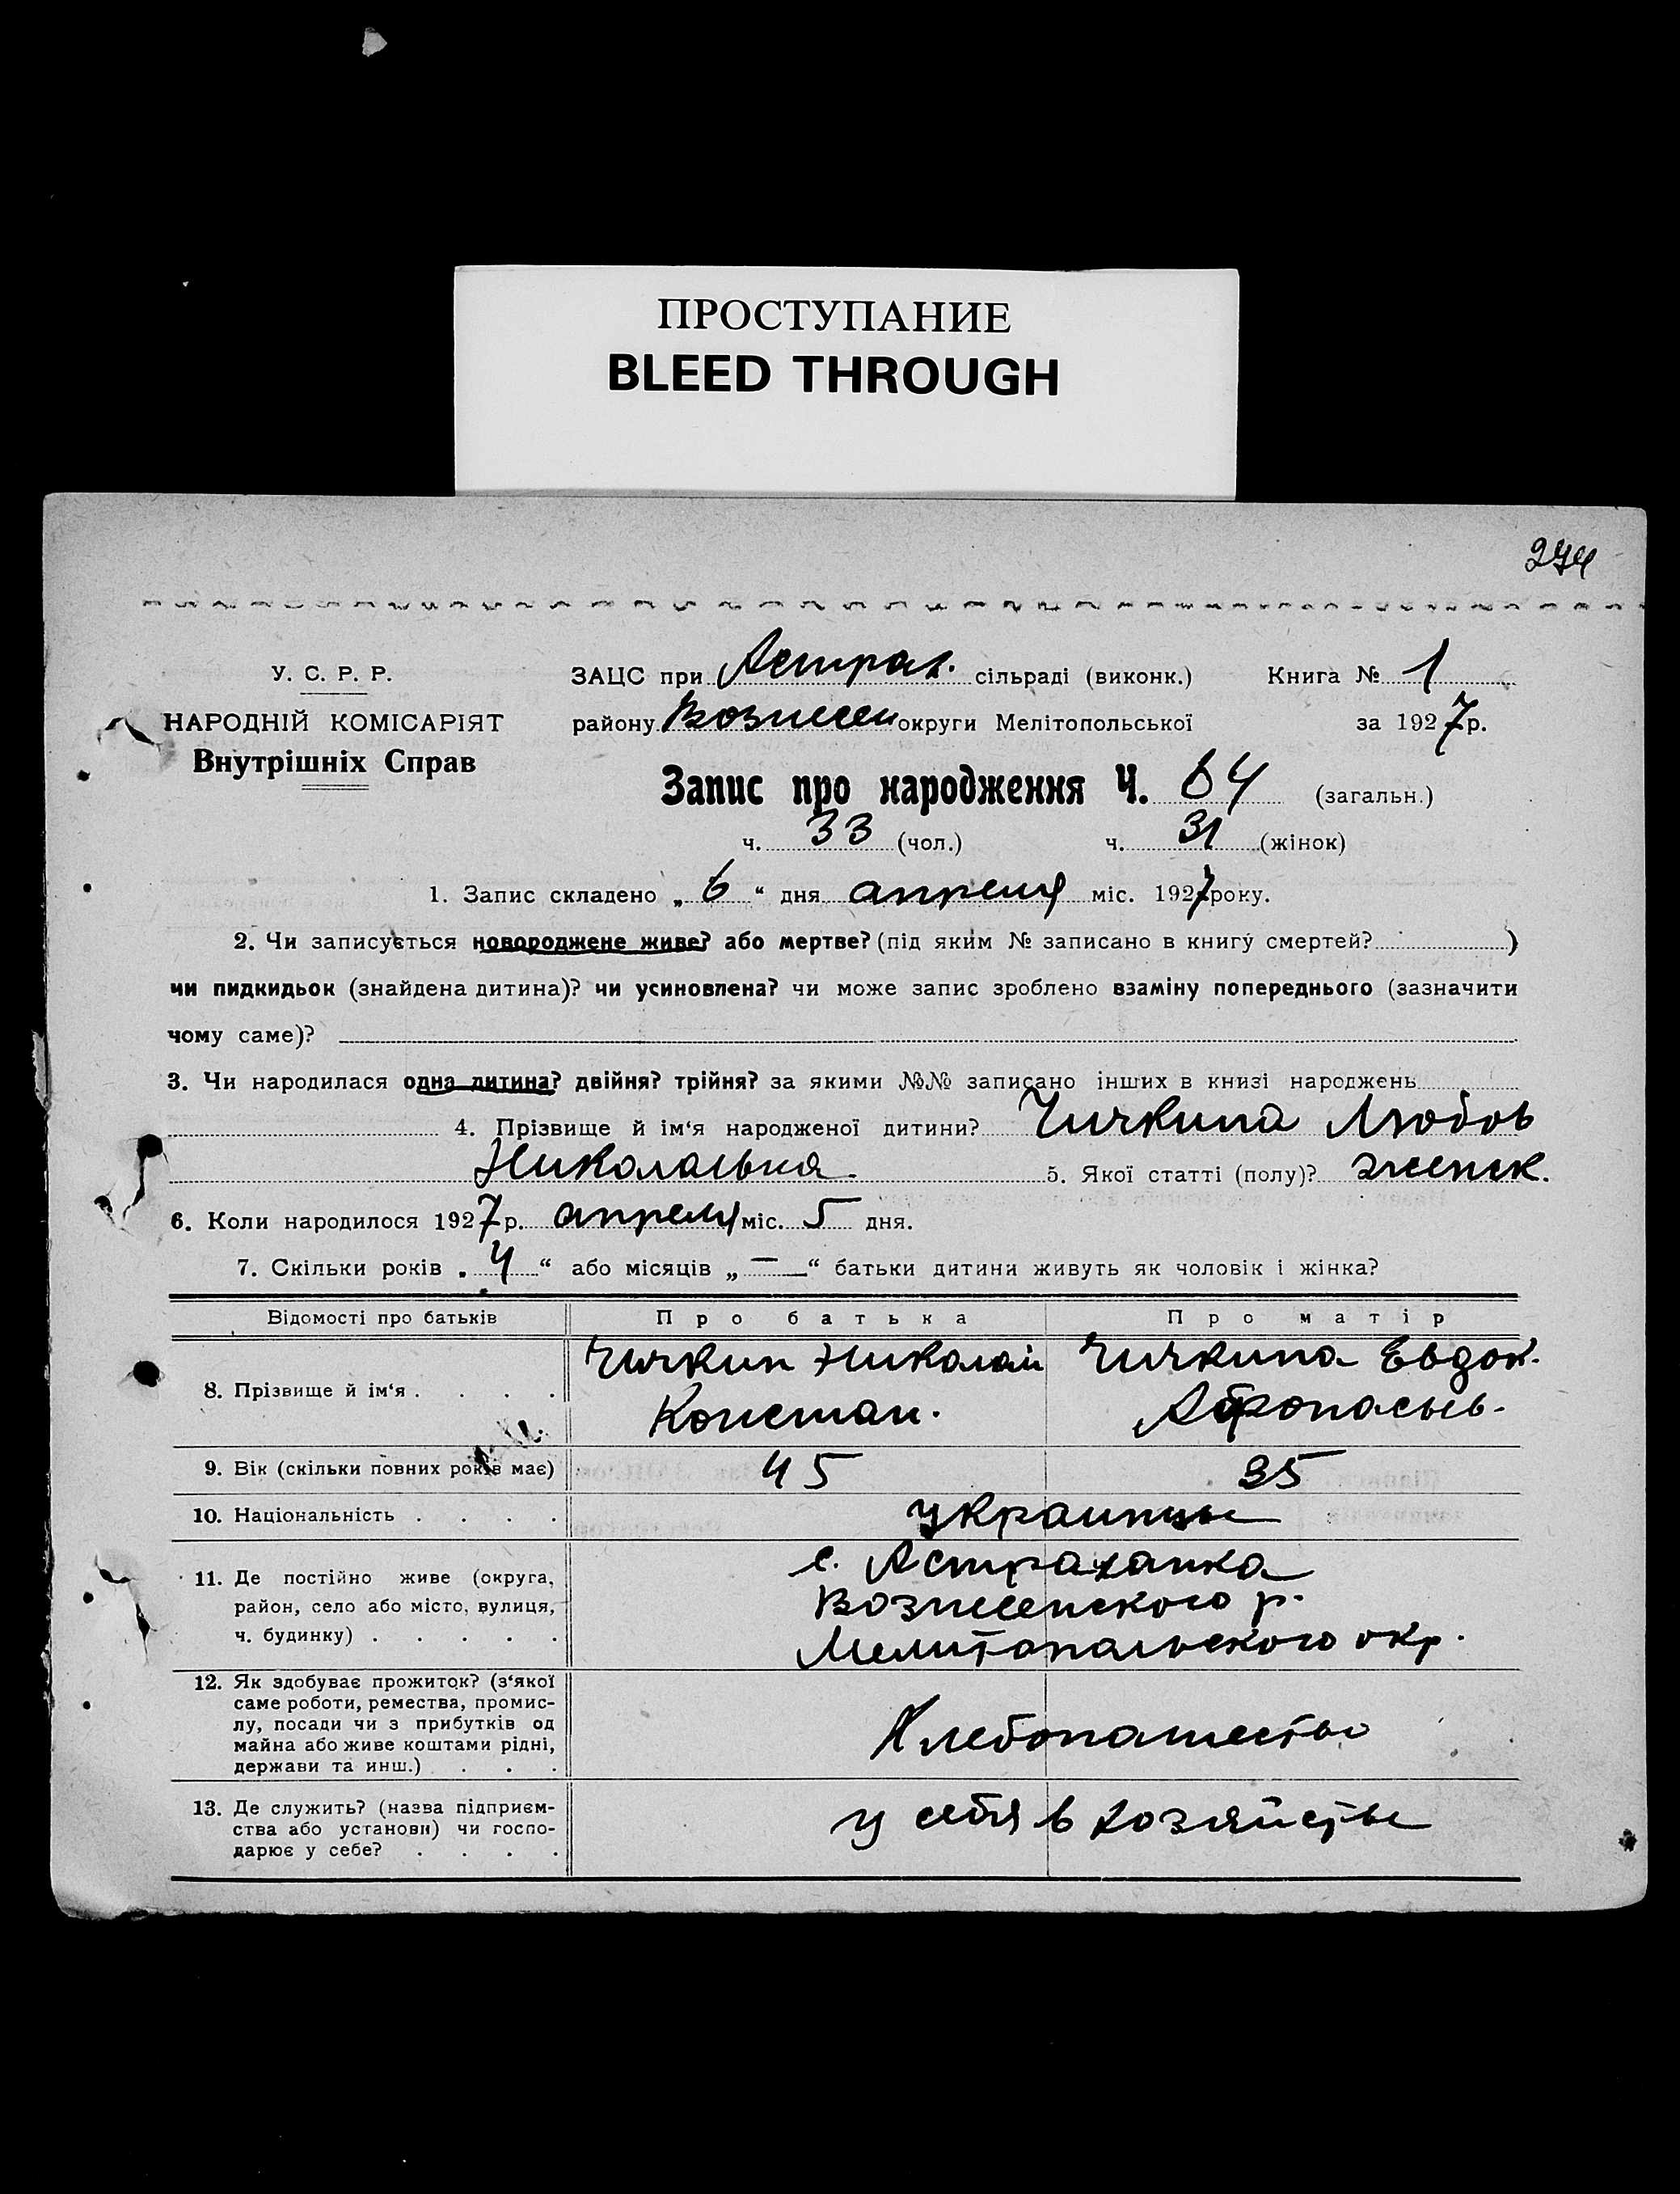 ПРОСТУПАНИЕ
BLEED THROUGH
274
У. С. Р. Р.
НАРОДНІЙ КОМІСАРІЯТ
Внутрішніх Справ
ЗАЦС при Астрах. сільраді (виконк.) Книга № 1
району Вознесен округи Мелітопольської за 1927 р.
Запис про народження Ч. 64 (загальн.)
ч. 33 (чол.) ч. 31 (жінок)
1. Запис складено „6“ дня апреля міс. 1927 року.
2. Чи записується новороджене живе? або мертве? (під яким № записано в книгу смертей? )
чи пидкидьок (знайдена дитина)? чи усиновлена? чи може запис зроблено взаміну попереднього (зазначити
чому саме)?
3. Чи народилася одна дитина? двійня? трійня? за якими №№ записано інших в книзі народжень
4. Прізвище й ім‘я народженої дитини? Чичкина Любов
Николаевна 5. Якої статті (полу)? женск.
6. Коли народилося 1927 р. апреля міс. 5 дня.
7. Скільки років „4“ або місяців „—“ батьки дитини живуть як чоловік і жінка?
Відомості про батьків Про батька Про матір
8. Прізвище й ім‘я . . . .
Чичкин Николай
Констан.
Чичкина Евдок.
Афонасьев.
9. Вік (скільки повних років має) 45 35
10. Національність . . . . украинцы
11. Де постійно живе (округа,
район, село або місто, вулиця,
ч. будинку) . . . . .
с. Астраханка
Вознесенского р.
Мелитопольского окр.
12. Як здобуває прожиток? (з‘якої
саме роботи, ремества, промис-
лу, посади чи з прибутків од
майна або живе коштами рідні,
держави та инш.) . . .
Хлебопашество
13. Де служить? (назва підприєм-
ства або установи) чи госпо-
дарює у себе? . . . .
у себя в хозяйстве